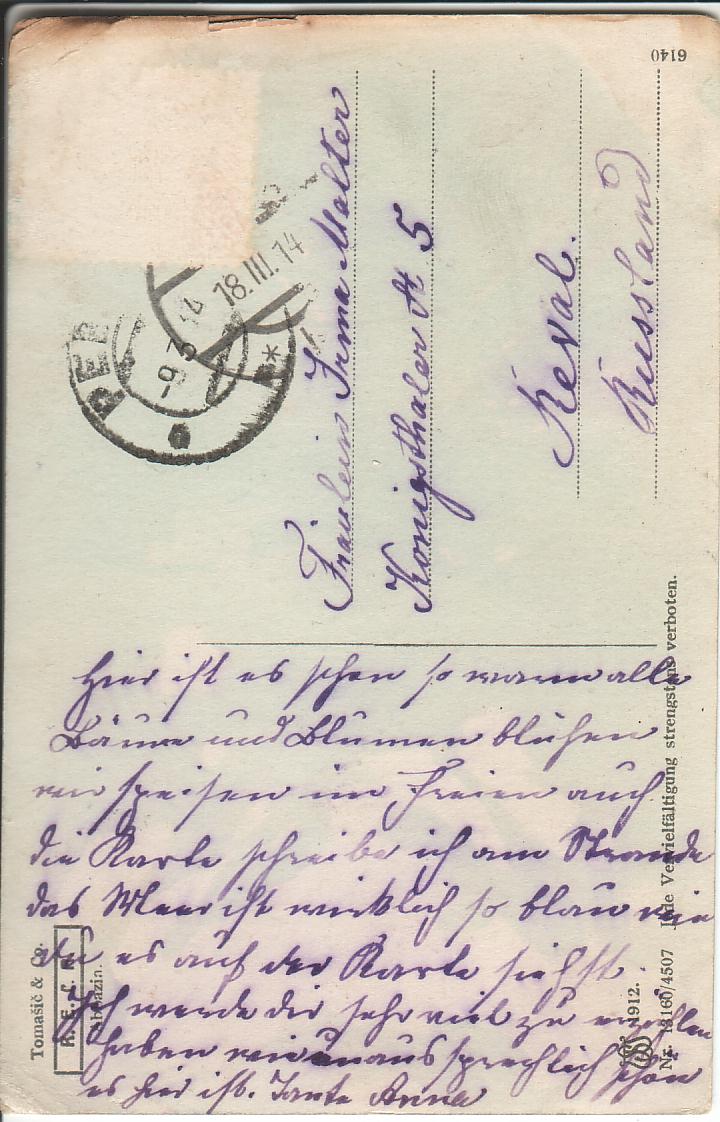 6140
18.III.14
-9.3.14
Fräulein Irma Malter
Königsthaler St 5
Reval.
Russland
Hier ist es schon so warm alle
Bäume und Blumen blühen
wir speisen im Freien auch
die Karte schreibe ich am Strande
das Meer ist wirklich so blau wie
du es auf der Karte siehst.
Ich werde dir sehr viel zu erzählen
haben wie unaussprechlich schön
es hier ist. Tante Anna
Tomašič & Co.
Abbazia.
1912.
Nr. 13160/4507 Jede Vervielfältigung strengstens verboten.